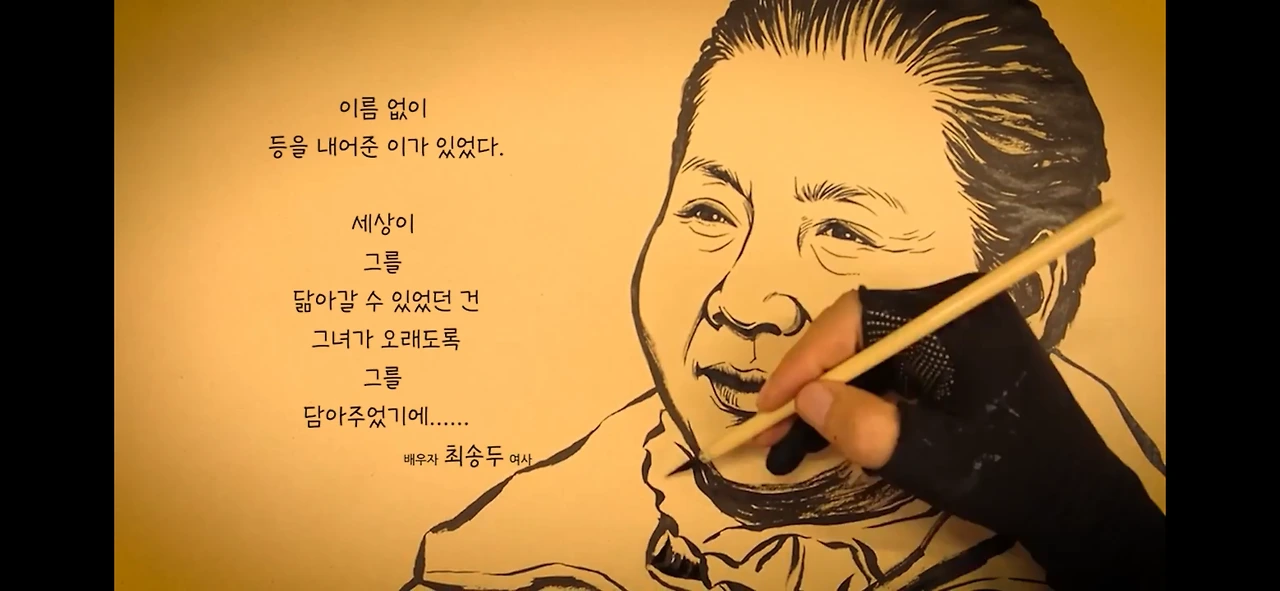 이름 없이
등을 내어준 이가 있었다.
세상이
그를
닮아갈 수 있었던 건
그녀가 오래도록
그를
담아주었기에......
배우자 최송두 여사